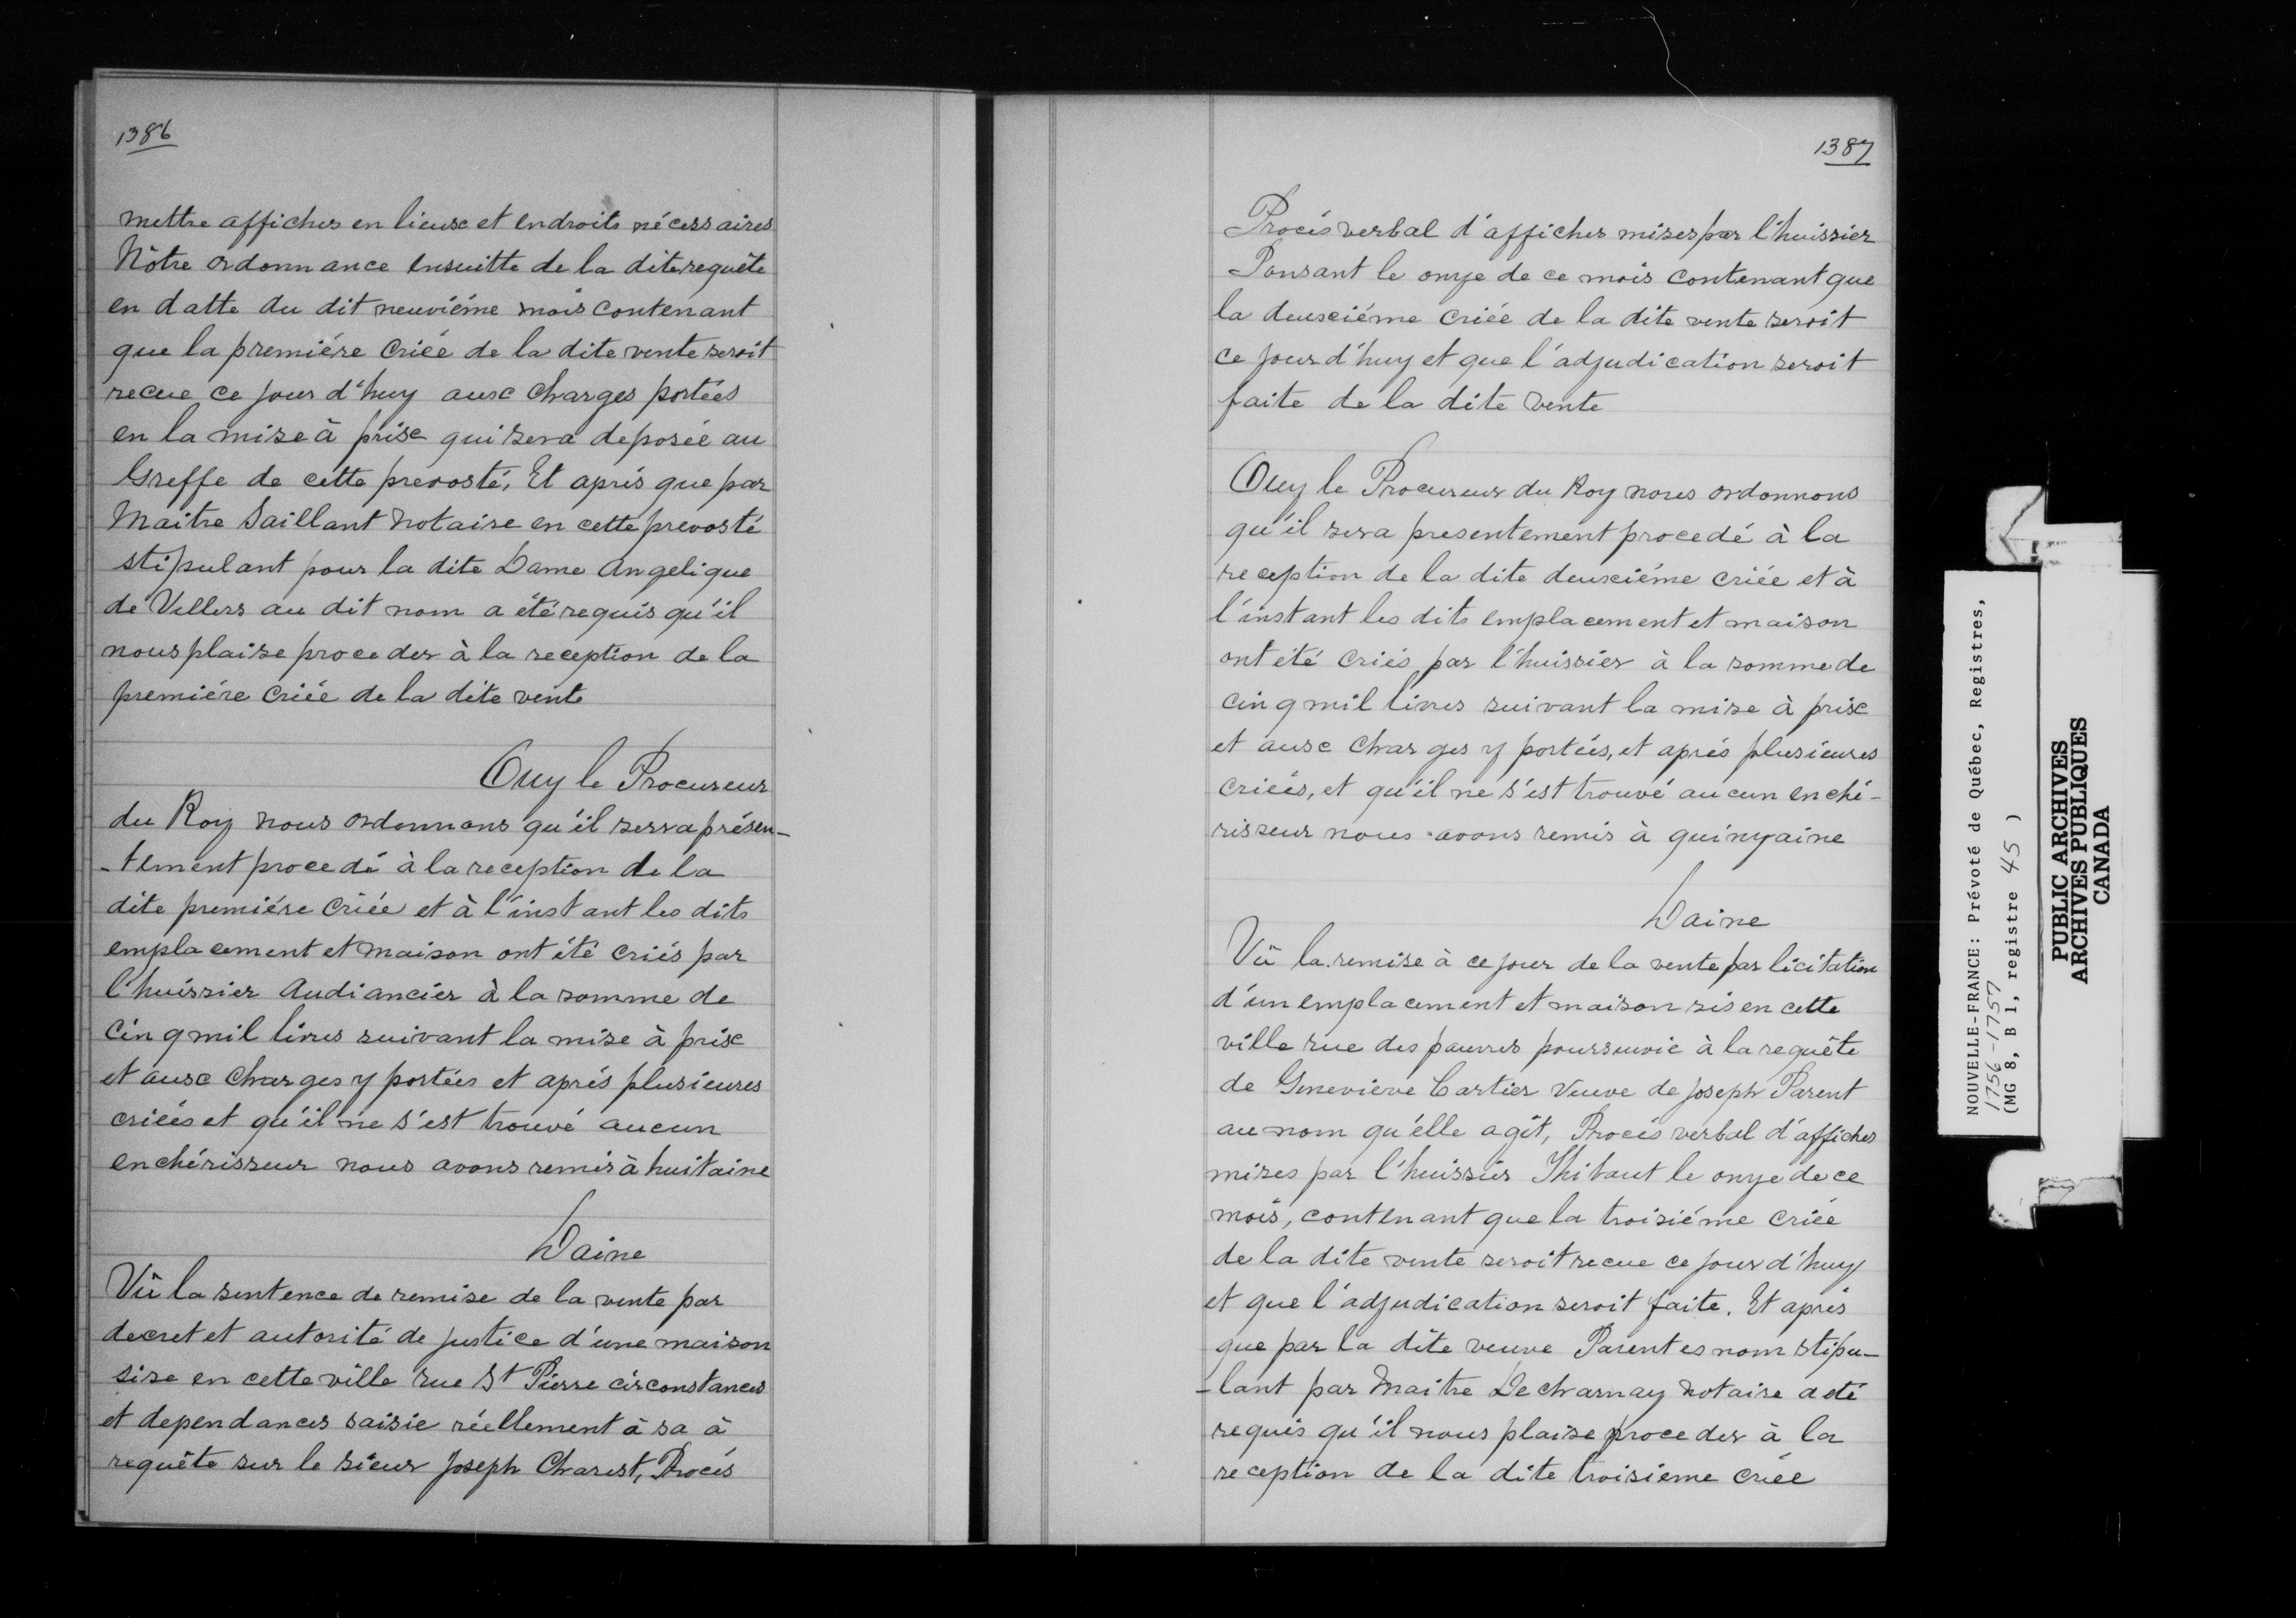 1386
mettre affiches en lieux et endroits nécessaires
Nôtre ordonnance ensuitte de la dite requête
en datte du dit neuviéme mois contenant
que la premiére criée de la dite vente seroit
recue ce jour d'huy aux charges portées
en la mise à prise qui sera deposée au
Greffe de cette prevosté, Et aprés que par
Maitre Saillant Notaire en cette prevosté
stipulant pour la dite Dame Angelique
de Villers au dit nom a été requis qu'il
nous plaise proceder à la reception de la
premiére criée de la dite vente
Ouy le Procureur
du Roy nous ordonnons qu'il serra présen-
-tement procedé à la reception de la
dite premiére criée et à l'instant les dits
emplacement et maison ont été criés par
l'huissier Audiancier à la somme de
Cinq mil livres suivant la mise à prise
et aux charges y portées et aprés plusieures
criées et qu'il ne s'est trouvé aucun
enchérisseur nous avons remis à huitaine
Daine
Vû la sentence de remise de la vente par
decret et autorité de justice d'une maison
sise en cette ville rue St Pierre circonstances
et dependances saisie réellement à sa à
requête sur le sieur Joseph Charest, Procés
1387
Procés verbal d'affiches mises par l'huissier
Ponsant le onze de ce mois contenant que
la deuxiéme criée de la dite vente seroit
ce jour d'huy et que l'adjudication seroit
faite de la dite vente
Ouy le Procureur du Roy nous ordonnons
qu'il sera presentement procedé à la
reception de la dite deuxiéme criée et à
l'instant les dits emplacement et maison
ont été criés par l'huissier à la somme de
cinq mil livres suivant la mise à prise
et aux charges y portées, et aprés plusieures
criées, et qu'il ne s'est trouvé aucun enché-
risseur nous avons remis à quinzaine
Daine
Vû la remise à ce jour de la vente par licitation
d'un emplacement et maison sis en cette
ville rue des pauvres poursuivie à la requête
de Geneviève Cartier Veuve de Joseph Parent
au nom qu'élle agit, Procés verbal d'affiches
mises par l'huissier Thibaut le onze de ce
mois, contenant que la troisiéme criée
de la dite vente seroit recue ce jour d'huy
et que l'adjudication seroit faite. Et aprés
que par la dite veuve Parent es nom stipu-
-lant par Maitre Decharnay Notaire a eté
requis qu'il nous plaise proceder à la
reception de la dite troisieme criée
NOUVELLE-FRANCE: Prévoté de Québec, Registres,
1756-1757
(MG 8, B 1, registre 45 )
PUBLIC ARCHIVES
ARCHIVES PUBLIQUES
CANADA